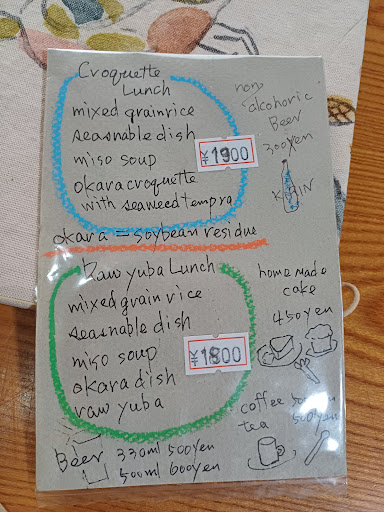 Croquette
Lunch
mixed grain rice
seasnable dish
miso soup
okara croquette
with seaweed tempra
¥1900
non
alcohoric
Beer
300yen
KIRIN
okara = soybean residue
Raw yuba Lunch
mixed grain rice
seasnable dish
miso soup
okara dish
raw yuba
¥1800
home made
cake
450yen
coffee 500yen
tea 500yen
Beer 330ml 500yen
500ml 600yen